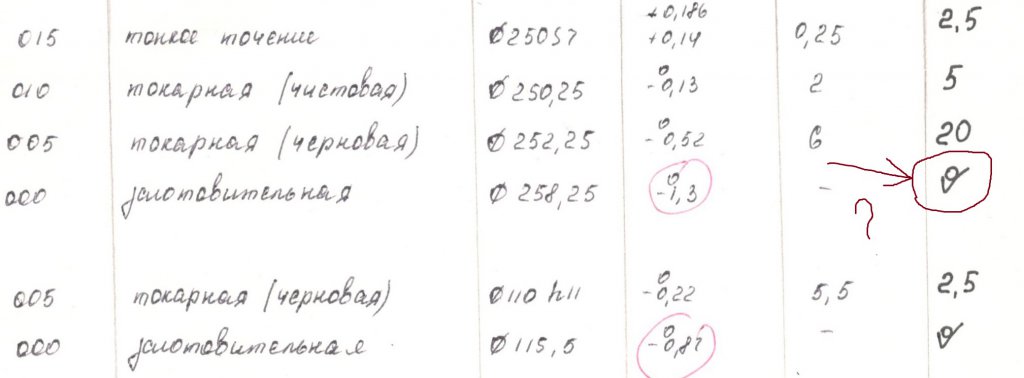 015 тонкое точение Ø250S7 +0,186 +0,14 0,25 2,5
010 токарная (чистовая) Ø250,25 0 -0,13 2 5
005 токарная (черновая) Ø252,25 0 -0,52 6 20
000 заготовительная Ø258,25 0 -1,3 -
?
005 токарная (черновая) Ø110 h11 0 -0,22 5,5 2,5
000 заготовительная Ø115,5 0 -0,87 -